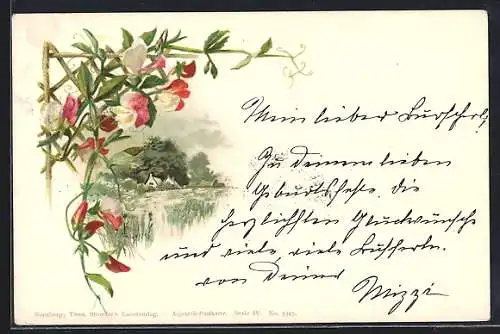 Mein lieber Burscherl!
Zu Deinem lieben
Geburtsfeste die
herzlichsten Glückwünsche
und viele, viele Busserln.
von Deiner
Mizzi
Nürnberg, Theo. Stroefer's Kunstverlag. Aquarell-Postkarte. Serie IV. No.